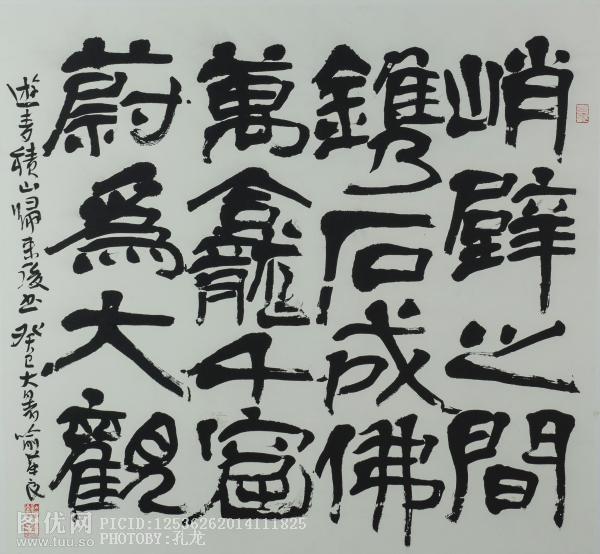 峭壁之間
鐫石成佛
萬龕千窟
蔚爲大觀
遊麦積山歸来後书 癸巳大暑 喻革良
图优网
www.tuu.so
PICID:12536262014111825
PHOTOBY:孔龙